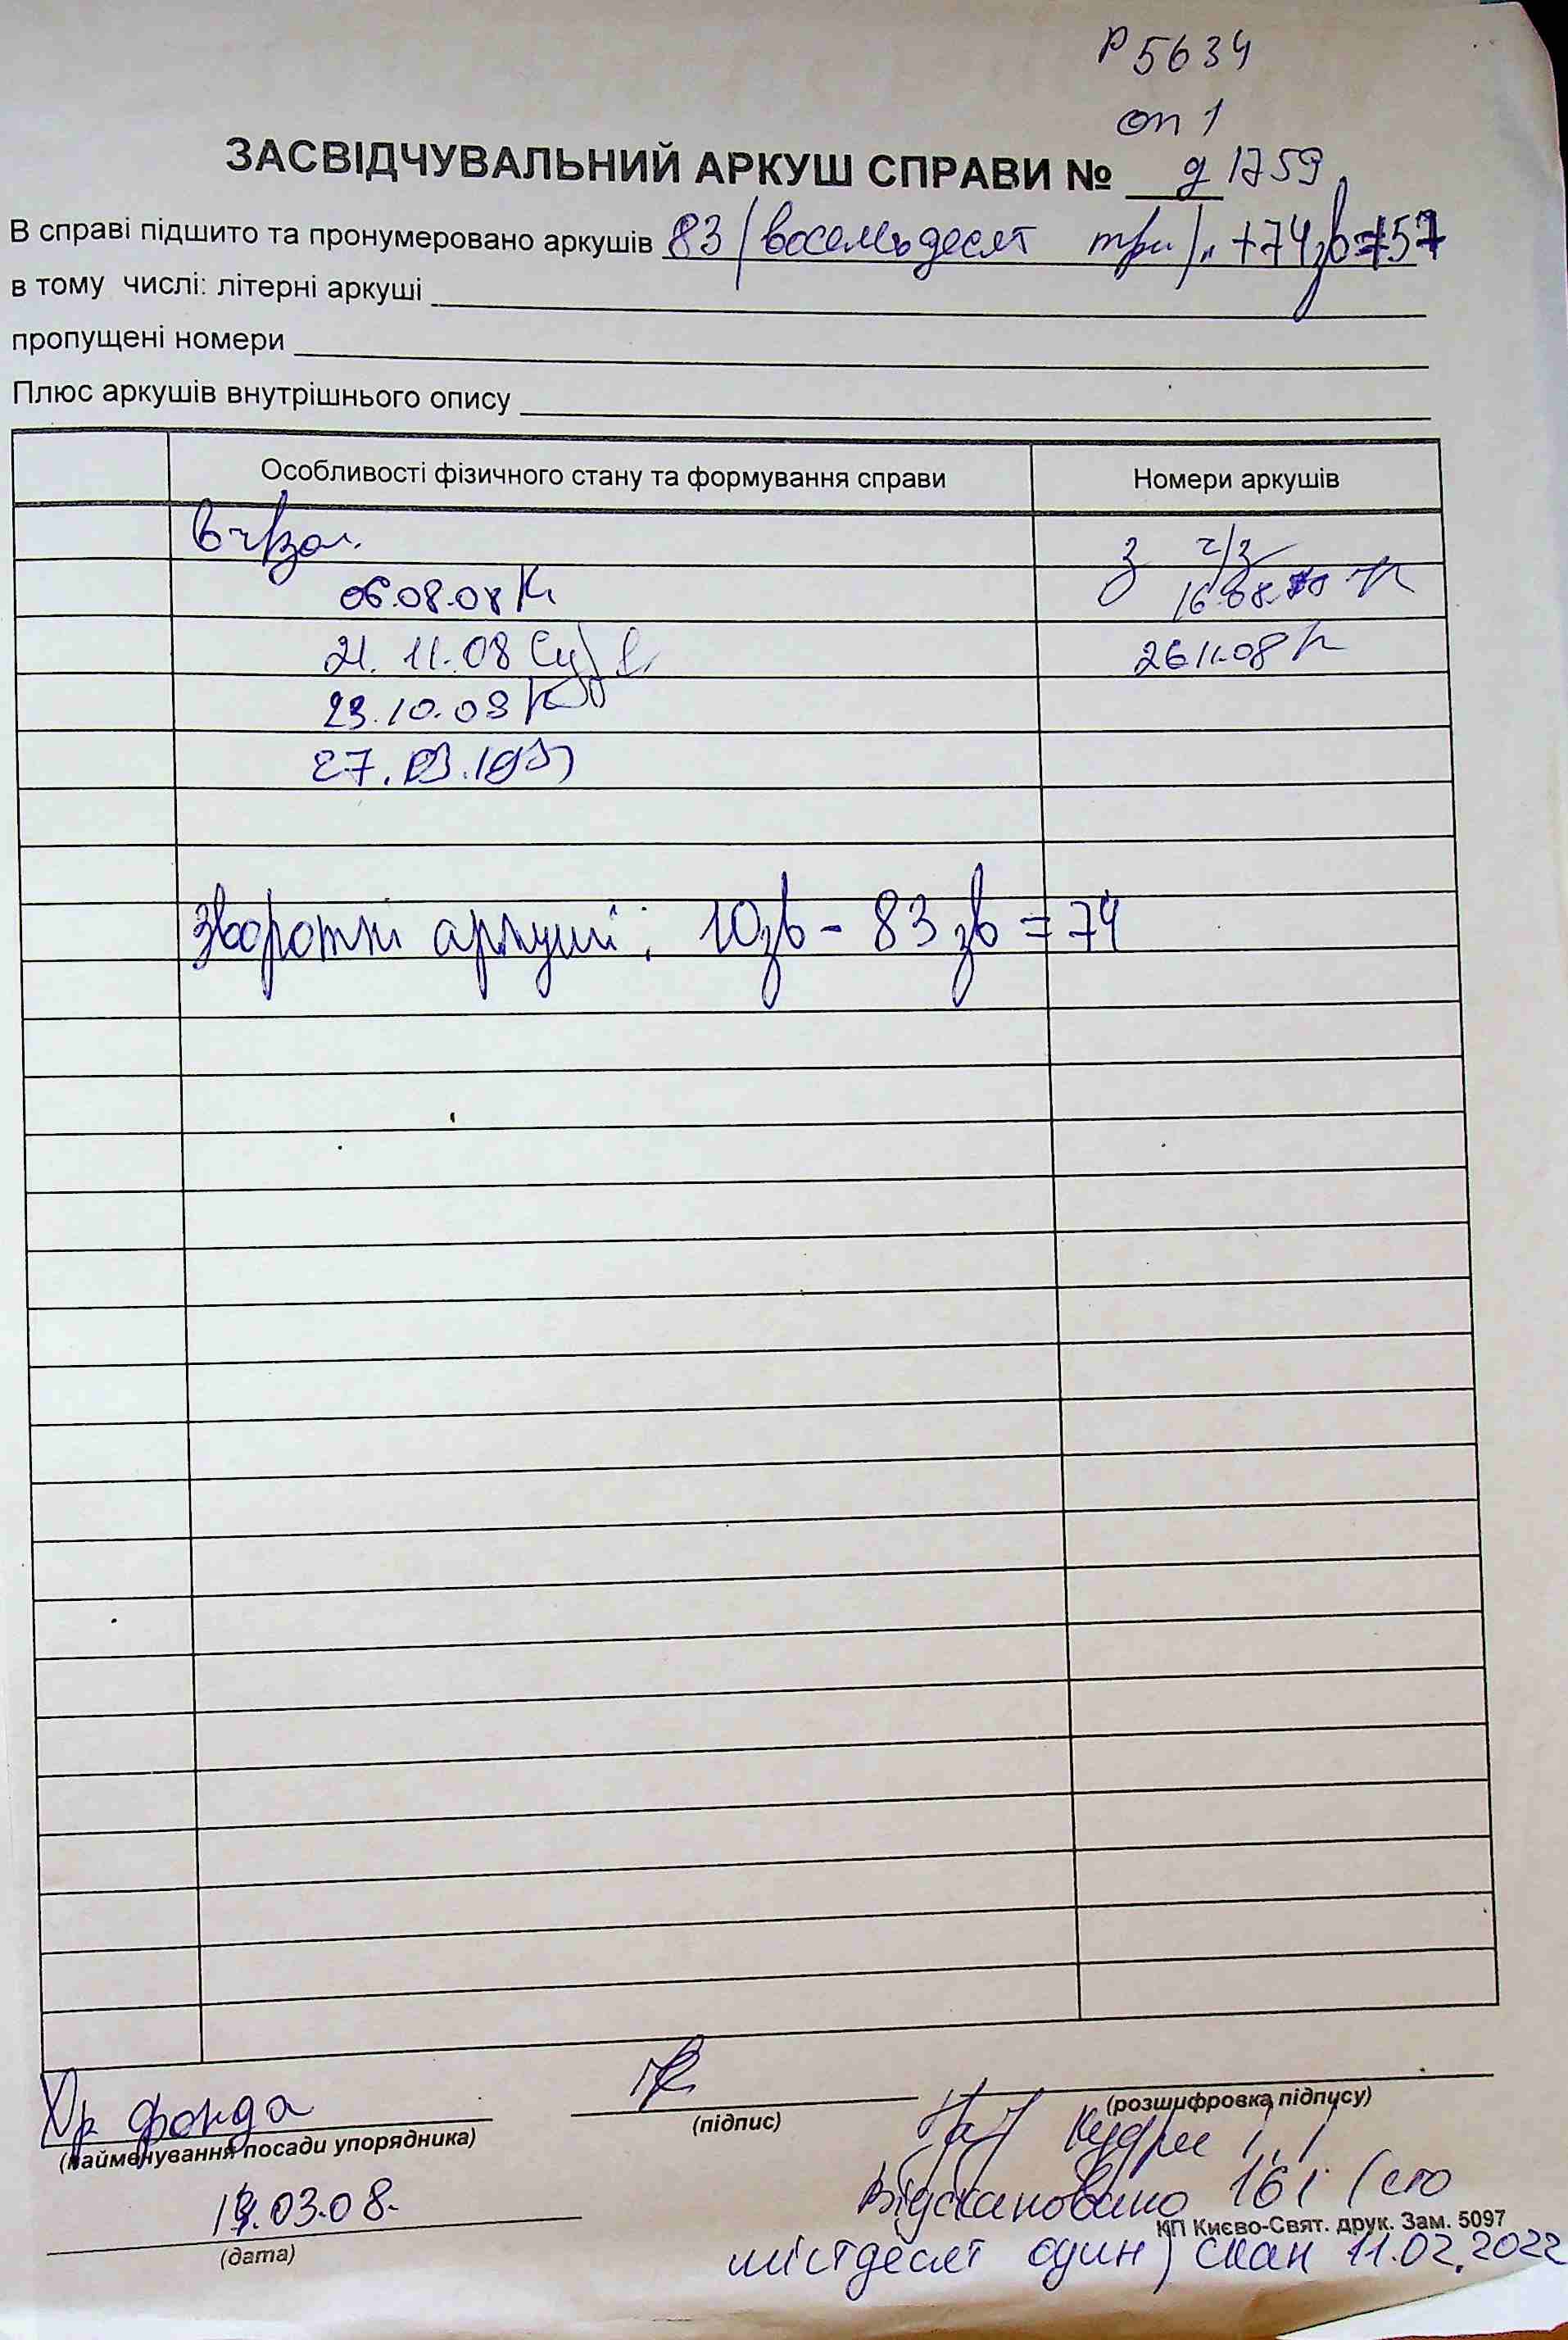 Р 5634
оп 1
ЗАСВІДЧУВАЛЬНИЙ АРКУШ СПРАВИ № д 1759
В справі підшито та пронумеровано аркушів 83 (восемьдесят три) +74зв=157
в тому числі: літерні аркуші
пропущені номери
Плюс аркушів внутрішнього опису
Особливості фізичного стану та формування справи Номери аркушів
з ч/з
06.08.08
21.11.08 26.11.08
23.10.09
27.03.
зворотні аркуші: 10зв - 83 зв = 74
Хр. фонда
(найменування посади упорядника) (підпис) (розшифровка підпису)
03.08
(дата)
Відскановано 161 (сто
КП Києво-Свят. друк. Зам. 5097
містдесят один) скан 11.02.2022